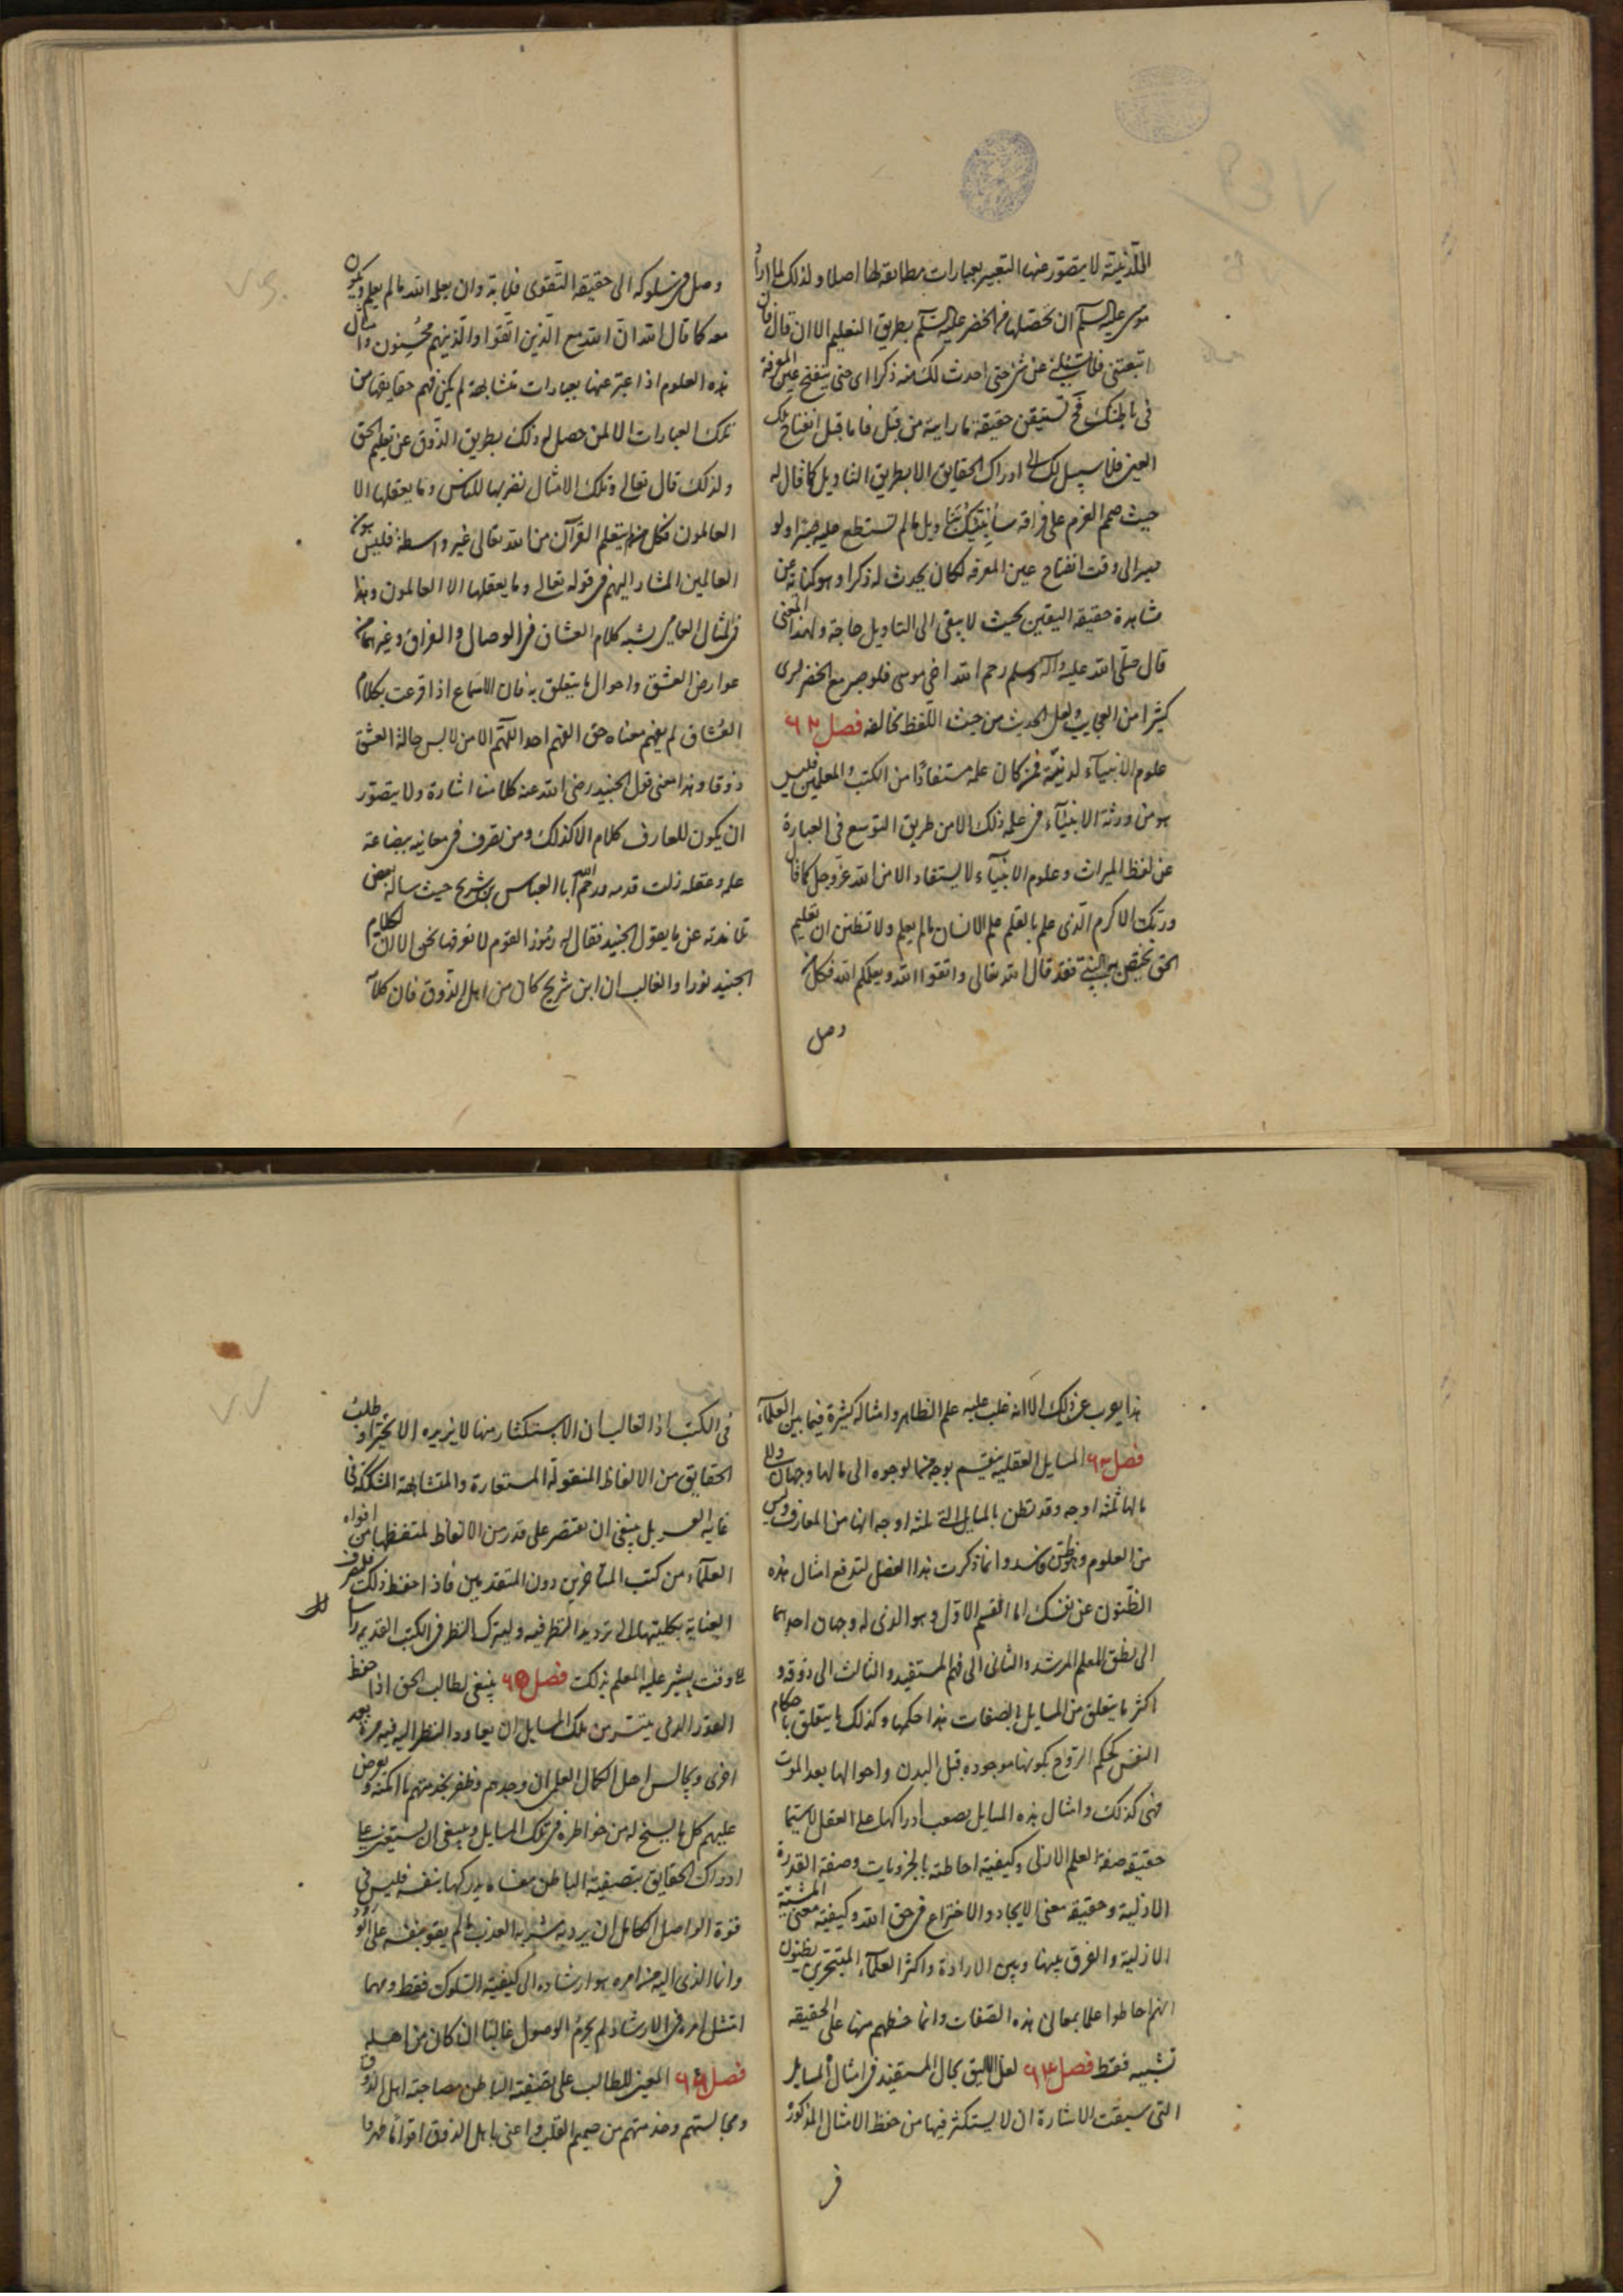 اللدنية لا يتصور عنها التعبير بعبارات مطابقة لها اصلا ولذلك لما اراد
موسى عليه السلم ان يحصلها من الخضر عليه السلم بطريق التعليم الا ان قال فان
اتبعتنى فلا تسئلنى عن شئ حتى احدث لك منه ذكرا اى حتى ينفتح عين المعرفة
فى باطنك فح تستيقن حقيقة ما رايته من قبل فاما قبل انفتاح تلك
العين فلا سبيل لك الى ادراك الحقايق الا بطريق التاويل كما قال له
حيث صمم العزم على فراقه سانبئك بتاويل ما لم تستطع عليه صبرا ولو
صبر الى وقت انفتاح عين المعرفة لكان يحدث له ذكرا وهو كناية عن
مشاهدة حقيقة اليقين بحيث لا يبقى الى التاويل حاجة ولهذا المعنى
قال صلى الله عليه وآله وسلم رحم الله اخى موسى فلو صبر مع الخضر لرى
كثيرا من العجايب ولعل الحديث من حيث اللفظ يخالفه فصل ٦٢
علوم الانبيآء لدنية فمن كان علمه مستفادًا من الكتب والمعلمين فليس
هو من ورثة الانبيآء فى علمه ذلك الا من طريق التوسع فى العبارة
عن لفظ الميراث وعلوم الانبيآء لا يستفاد الا من الله عز وجل كما قال
وربك الاكرم الذى علم بالقلم علم الانسان ما لم يعلم ولا تظنن ان تعليم
الحق يختص بالنبى فقد قال الله تعالى واتقوا الله ويعلمكم الله فكل من
وصل
وصل فى سلوكه الى حقيقة التقوى فلا بد وان يعلمه الله ما لم يعلم ويكون
معه كما قال الله ان الله مع الذين اتقوا والذين هم محسنون وامثال
هذه العلوم اذا عبر عنها بعبارات متشابهة لم يكن فهم حقايقها من
تلك العبارات الا لمن حصل له ذلك بطريق الذوق عن تعليم الحق
ولذلك قال تعالى وتلك الامثال نضربها للناس وما يعقلها الا
العالمون فكل من لم يتعلم القرآن من الله تعالى غير واسطة فليس هو من
العالمين المشار اليهم فى قوله تعالى وما يعقلها الا العالمون وهذا
فى المثال العامى يشبه كلام العشاق فى الوصال والفراق وغيرهما من
عوارض العشق واحوال ما يتعلق به فان الاسماع اذا قرعت بكلام
العشاق لم يفهم معناه حق الفهم احد اللهم الا من لابس حالة العشق
ذوقا وهذا معنى قول الجنيد رضى الله عنه كلامنا اشارة ولا يتصور
ان يكون للعارف كلام الا كذلك ومن تصرف فى معانيه ببضاعة
علمه وعقله زلت قدمه ورحم الله ابا العباس بن شريح حيث ساله بعض
تلامذته عن ما يقول الجنيد فقال له رموز القوم لا نعرفها نحن الا ان لكلام
الجنيد نورا والغالب ان ابن شريح كان من اهل الذوق فان كلامه
هذا يعرب عن ذلك الا انه غلب عليه علم الظاهر وامثاله كثيرة فيما بين العلمآء
فصل ٦٣ المسايل العقلية ينقسم بوجه من الوجوه الى ما لها وجهان والى
ما لها ثلثة اوجه وقد تظن بالمسايل التى لها ثلثة اوجه انها من المعارف وليس
من العلوم وهو ظن فاسد وانما ذكرت هذا الفصل لتدفع امثال هذه
الظنون عن نفسك اما القسم الاول وهو الذى له وجهان احدهما
الى نطق المعلم المرشد والثانى الى فهم المستفيد والثالث الى ذوقه و
اكثر ما يتعلق من المسايل بالصفات هذا حكمها وكذلك ما يتعلق باحكام
النفس كحكم الروح بكونها موجوده قبل البدن واحوالها بعد الموت
فهى كذلك وامثال هذه المسايل يصعب ادراكها على العقل لا سيما
حقيقة صفة العلم الازلى وكيفية احاطته بالجزويات وصفة القدرة
الازلية وحقيقة معنى الايجاد والاختراع فى حق الله وكيفية معنى المشية
الازلية والفرق بينها وبين الارادة واكثر العلمآء المتبحرين يظنون
انهم احاطوا علما بمعانى هذه الصفات وانما حظهم منها على الحقيقه
تشبيه فقط فصل ٦٤ لعل الاليق بحال المستفيد فى امثال المسايل
التى سبقت الاشارة ان لا يستكثر فيها من حفظ الامثال المذكورة
فى
فى الكتب اذ الغالب ان الاستكثار منها لا يزيده الا تحيرا وطلب
الحقايق من الالفاظ المنقولة المستعارة والمتشابهة المشككة فى
غاية العسر بل ينبغى ان يقتصر على قدر من الالفاظ يتحفظها من افواه
العلمآء من كتب المتاخرين دون المتقدمين فاذا حفظ ذلك فليصرف
العناية بكليتها الى ترديد النظر فيه وليترك النظر فى الكتب القديم راسا
الى وقت يشير عليه المعلم بذلك فصل ٦٥ ينبغى لطالب الحق اذا حفظ
القدر الذى يتيسر من تلك المسايل ان يعاود النظر اليه فيه مرة بعد
اخرى ويجالس اهل الكمال العلم ان وجدهم وظفر بخدمتهم ما امكنه ويعرض
عليهم كل ما يسنح له من خواطره فى تلك المسايل وينبغى ان يستعين على
ادراك الحقايق بتصفية الباطن فما لا يدركها بنفسه فليس فى
قوة الواصل الكامل ان يرد به مشربه العذب ما لم يقو بنفسه على الورود
وانما الذى اليه من امره هو ارشاده الى كيفية السلوك فقط ومهما
امتثل امره فى الارشاد لم يحرم الوصول غالبا ان كان من اهله
فصل ٦٦ المعين للطالب على تصفية الباطن مصاحبة اهل الذوق
ومجالستهم وخدمتهم من صميم القلب واعنى باهل الذوق اقوامًا طهروا